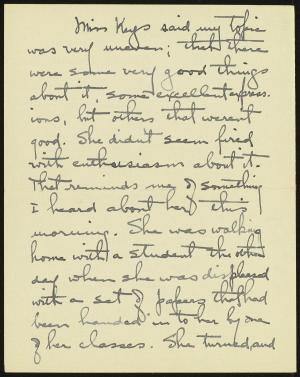 Miss Keys said my topic
was very uneven; that there
were some very good things
about it, some excellent express-
ions, but others that weren't
good. She didn't seem fired
with enthusiasm about it.
That reminds me of something
I heard about her this
morning. She was walking
home with a student the other
day when she was displeased
with a set of papers that had
been handed in to her by one
of her classes. She turned, and